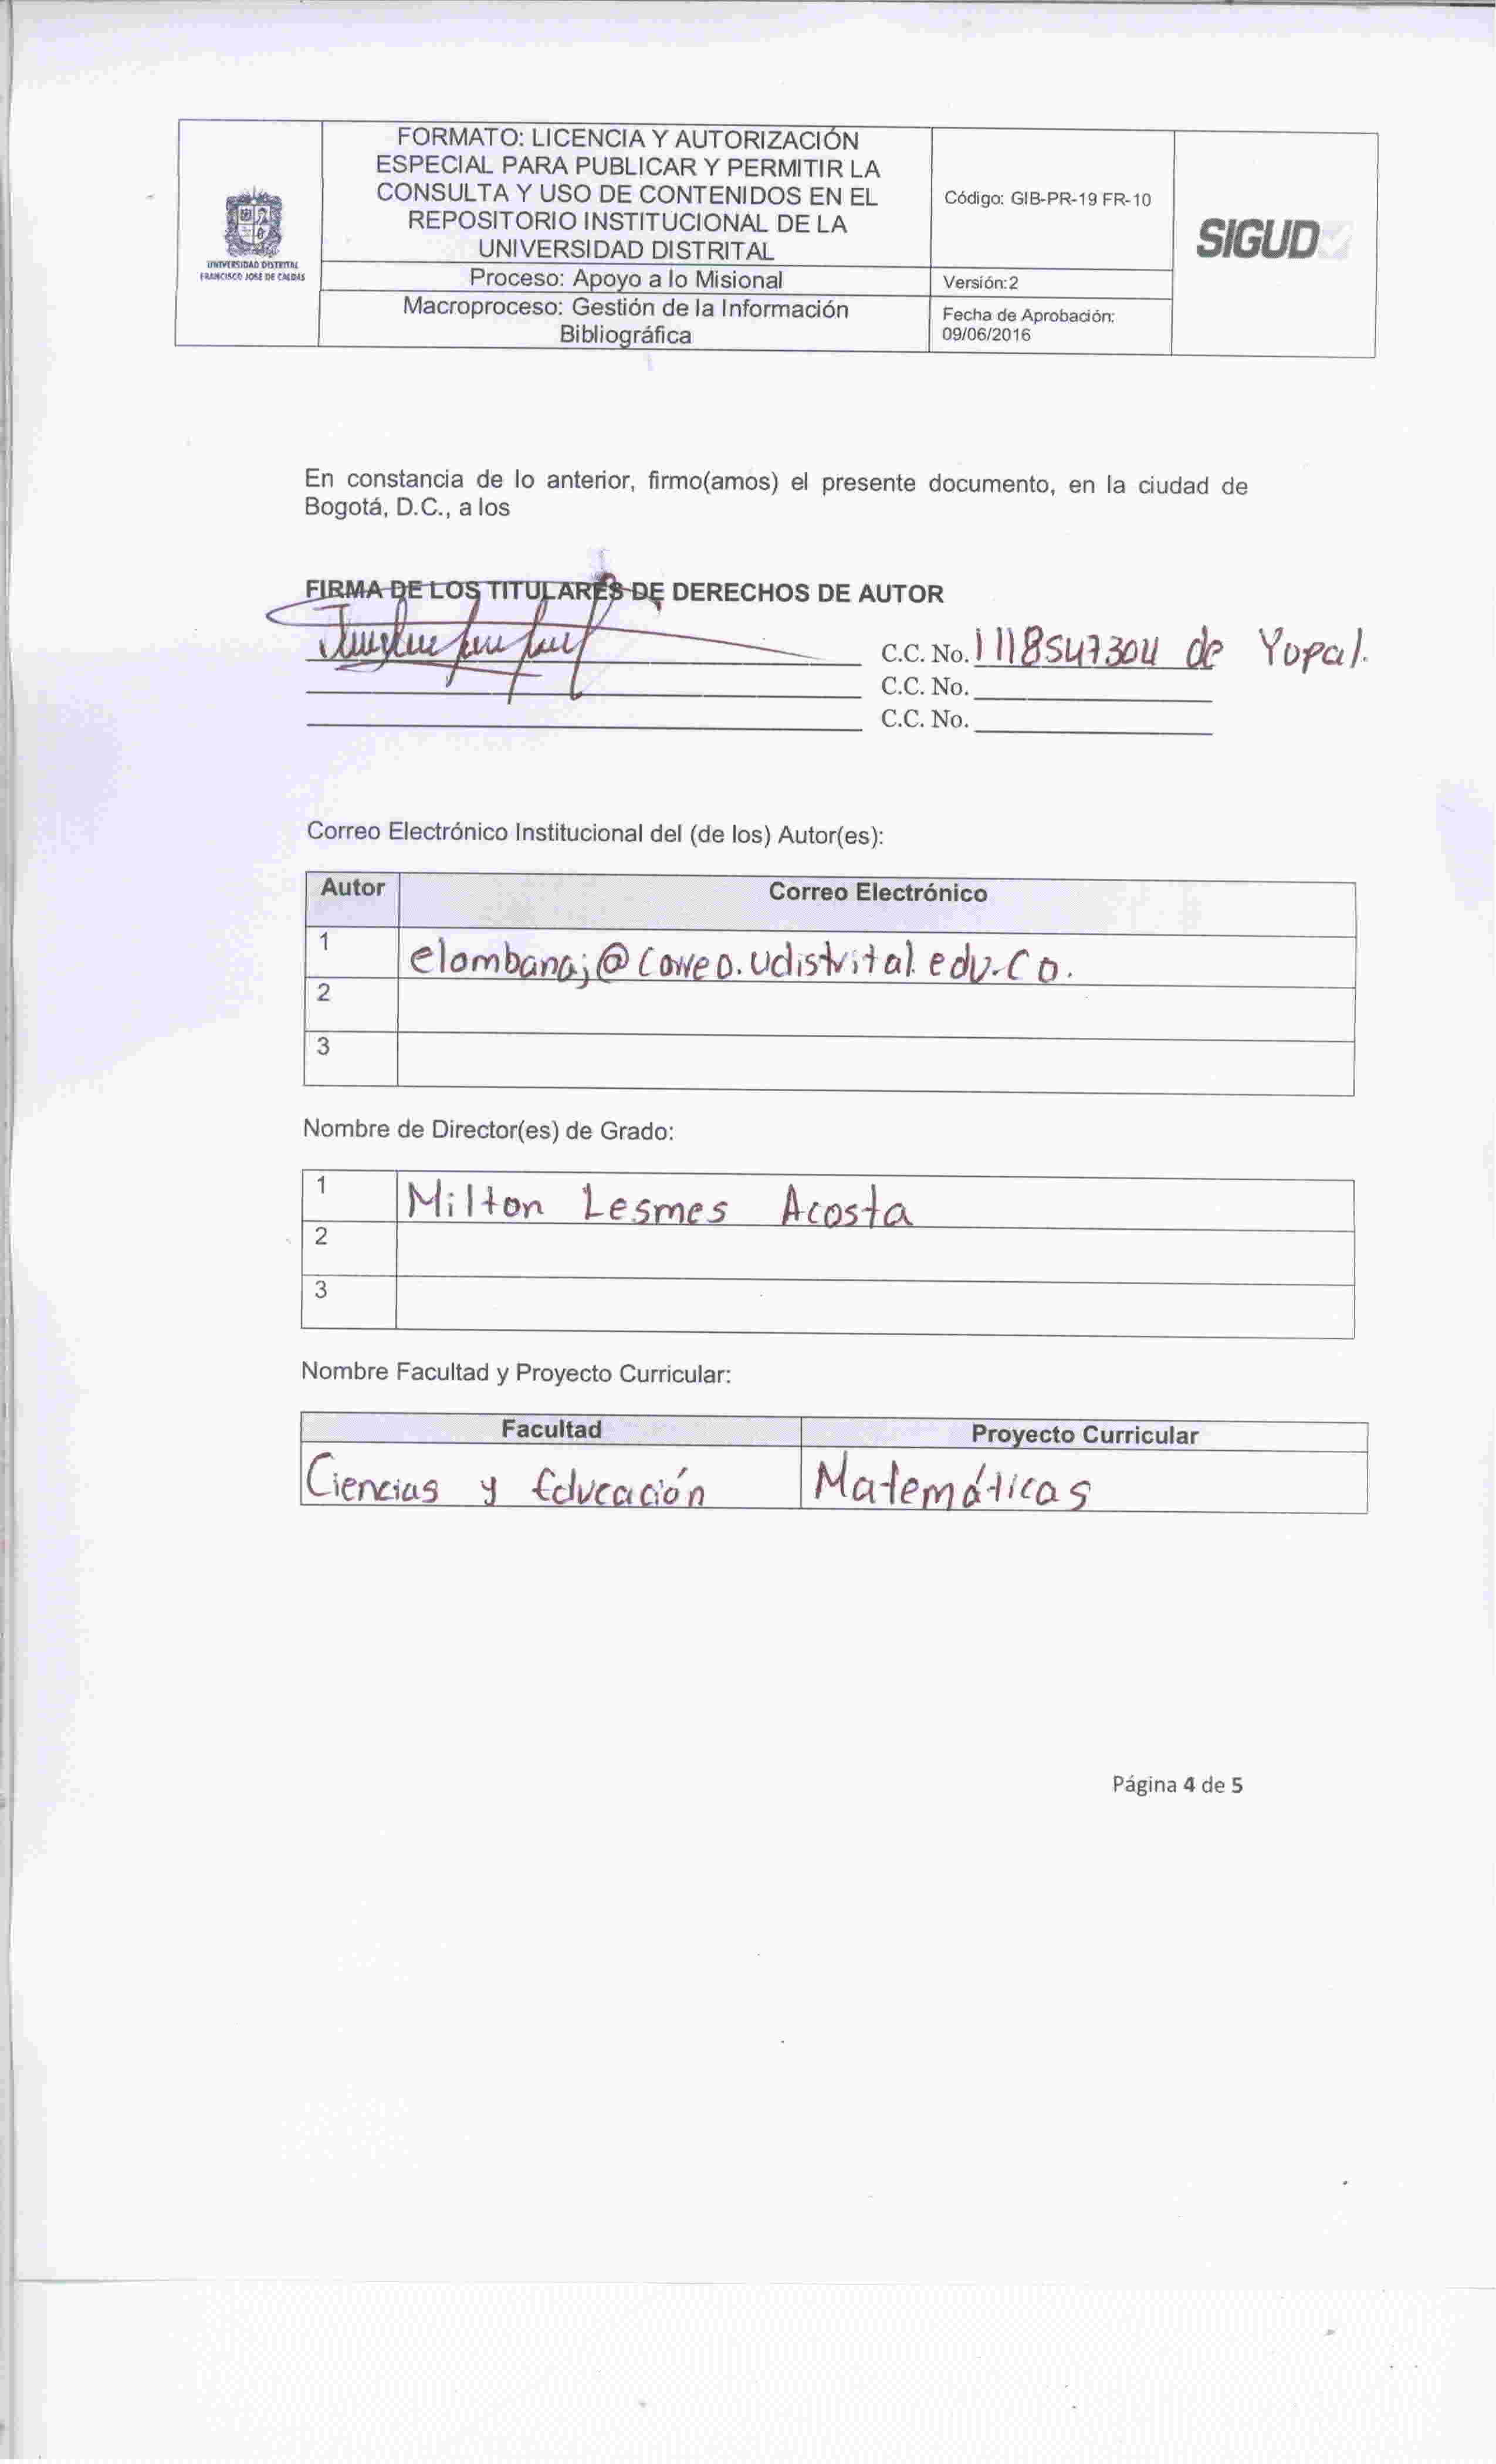 FORMATO: LICENCIA Y AUTORIZACIÓN
ESPECIAL PARA PUBLICAR Y PERMITIR LA
CONSULTA Y USO DE CONTENIDOS EN EL
REPOSITORIO INSTITUCIONAL DE LA
UNIVERSIDAD DISTRITAL
Código: GIB-PR-19 FR-10
SIGUD
UNIVERSIDAD DISTRITAL
FRANCISCO JOSÉ DE CALDAS
Proceso: Apoyo a lo Misional
Versión:2
Macroproceso: Gestión de la Información
Bibliográfica
Fecha de Aprobación:
09/06/2016
En constancia de lo anterior, firmo(amos) el presente documento, en la ciudad de
Bogotá, D.C., a los
FIRMA DE LOS TITULARES DE DERECHOS DE AUTOR
C.C. No. 1118547304 de Yopal.
C.C. No.
C.C. No.
Correo Electrónico Institucional del (de los) Autor(es):
Autor Correo Electrónico
1 elombanaj@correo.udistrital.edu.co.
2
3
Nombre de Director(es) de Grado:
1 Milton Lesmes Acosta
2
3
Nombre Facultad y Proyecto Curricular:
Facultad Proyecto Curricular
Ciencias y Educación Matemáticas
Página 4 de 5